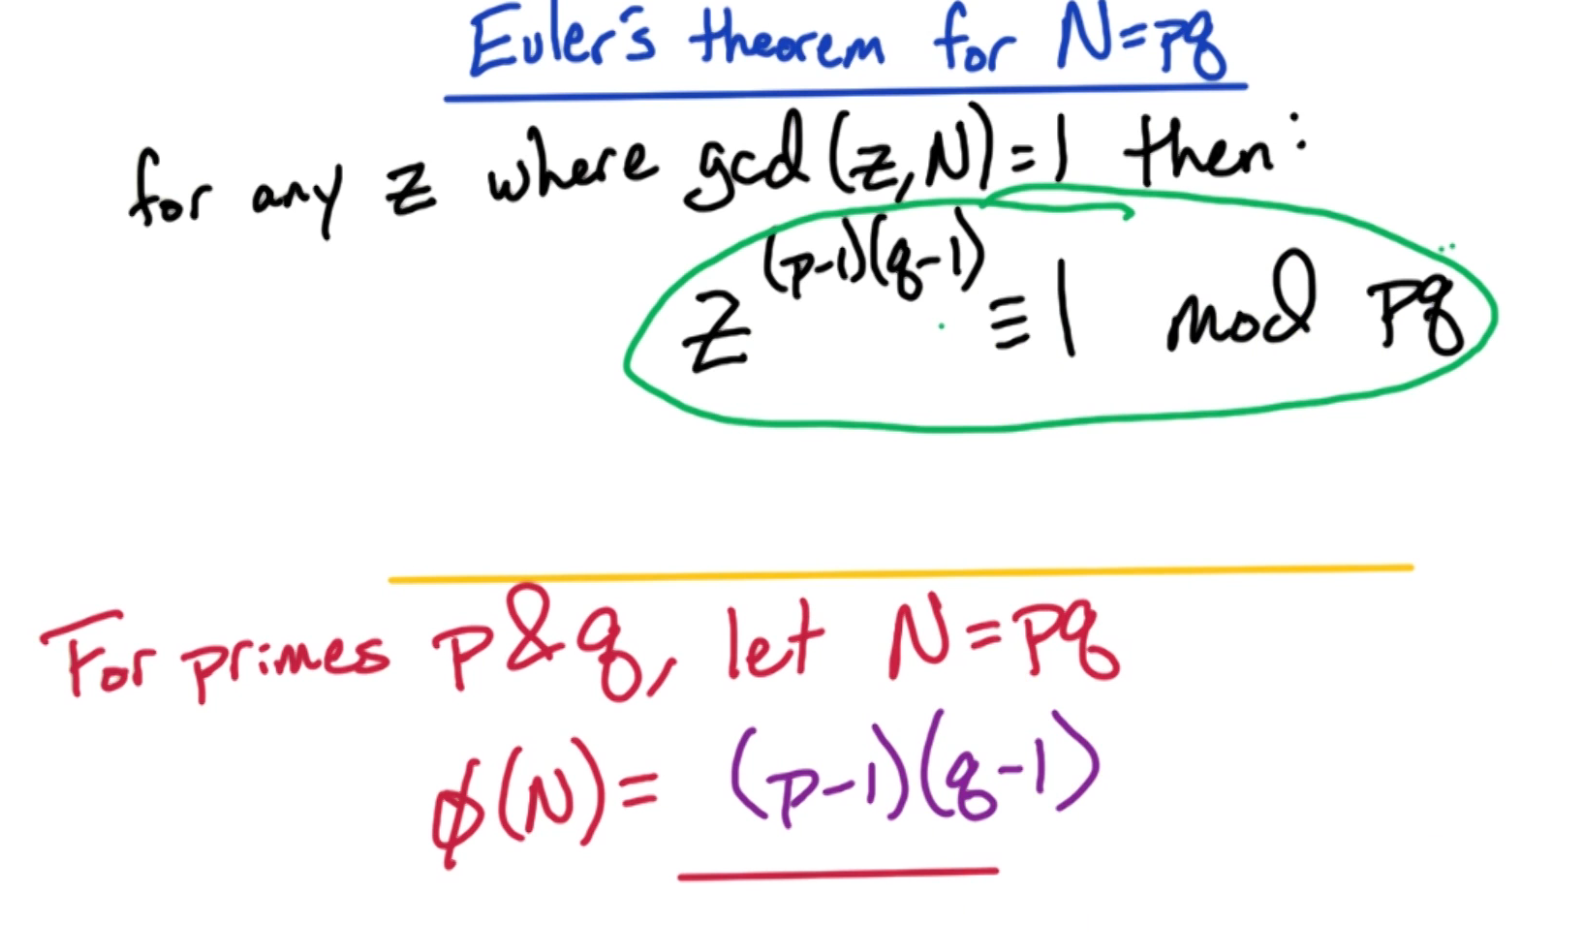 Euler's theorem for N=pq
for any z where gcd(z,N)=1 then:
z^(p-1)(q-1) ≡ 1 mod pq
For primes p&q, let N=pq
φ(N)= (p-1)(q-1)